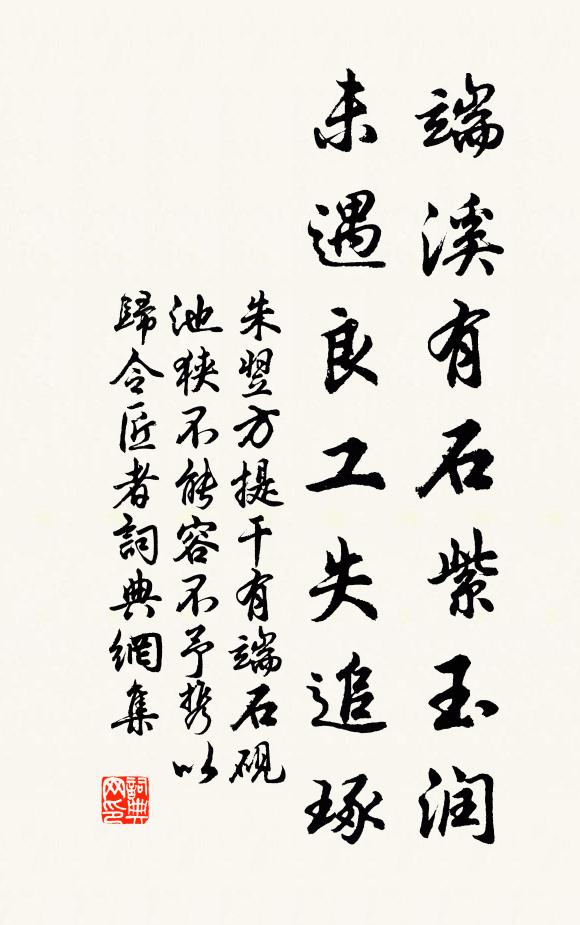 端溪有石紫玉润
未遇良工失追琢
朱翌方提干有端石砚
池狭不能容不予携以
歸令匠者詞典網集
詞典網印